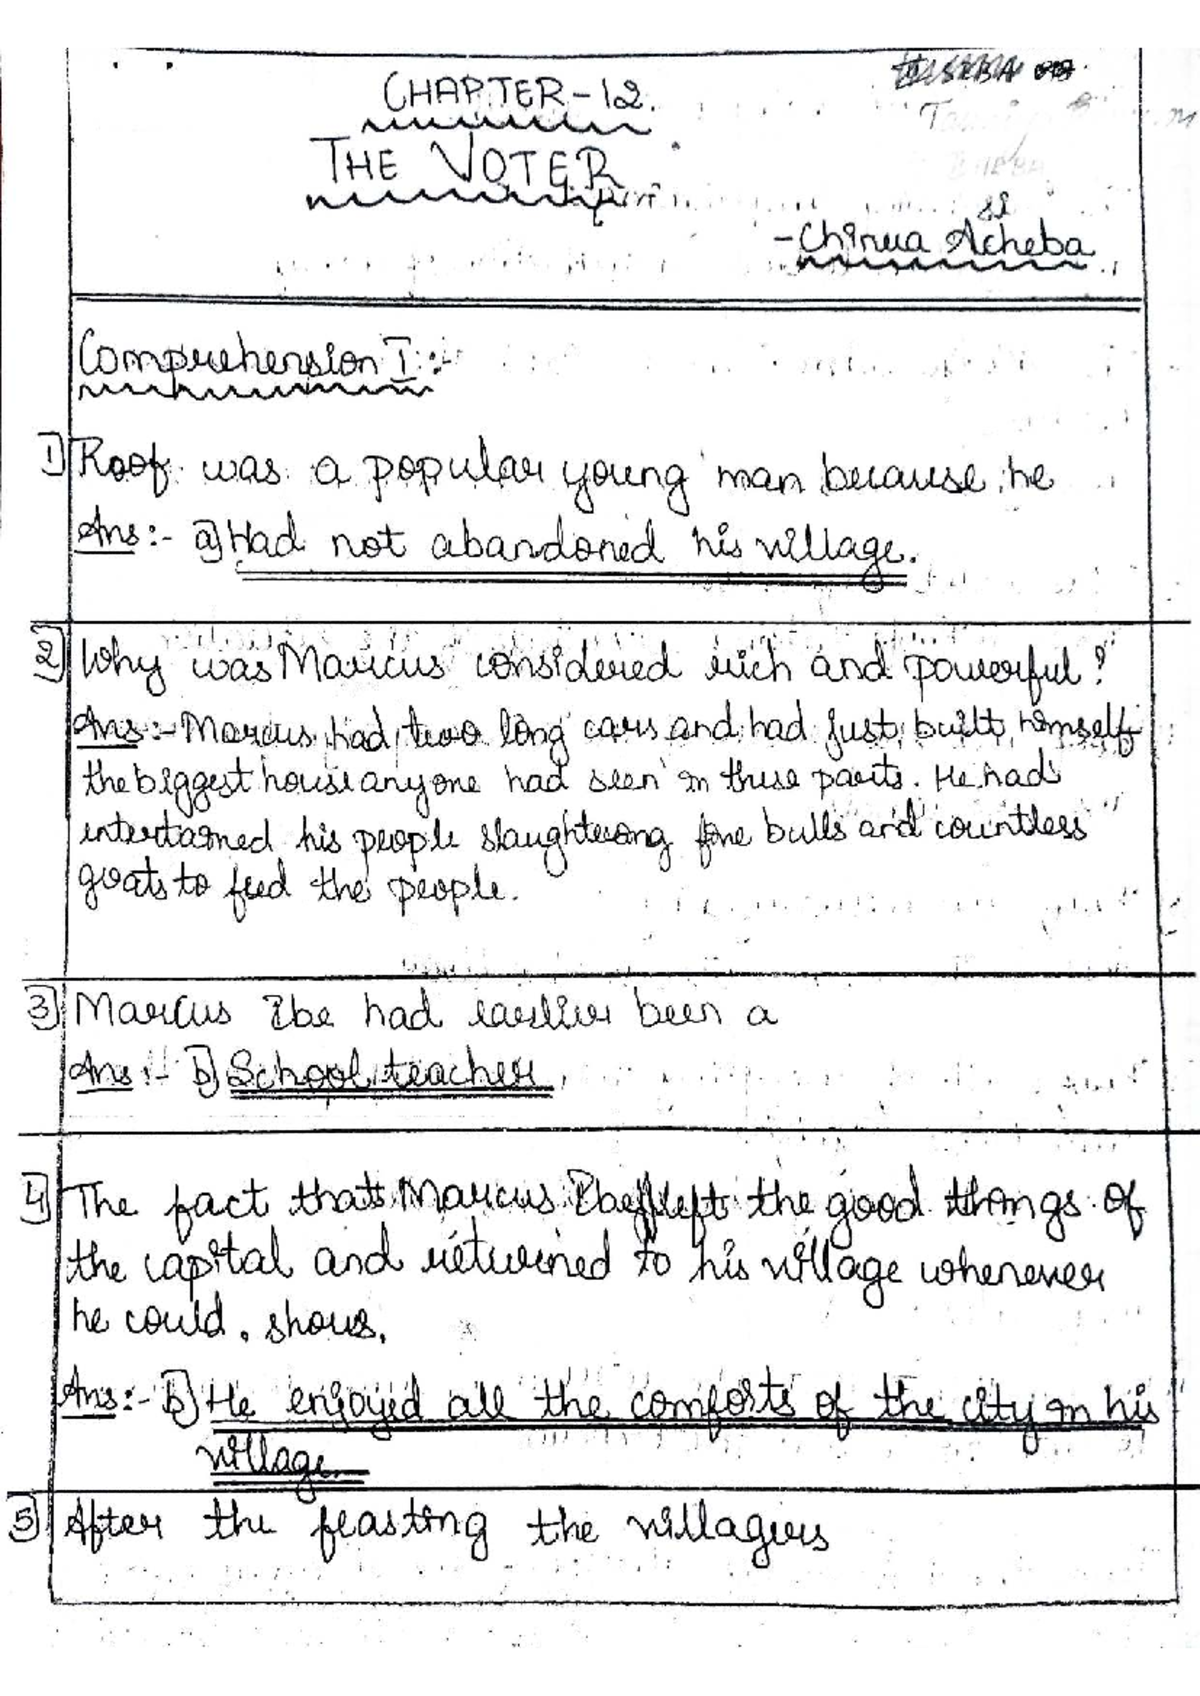 CHAPTER-12.
THE VOTER
-Chinua Acheba
Comprehension I:-
1) Roof was a popular young man because he
Ans:- a) Had not abandoned his village.
2) Why was Marcus considered rich and powerful?
Ans:- Marcus had two long cars and had just built himself
the biggest house anyone had seen in these parts. He had
entertained his people slaughtering fine bulls and countless
goats to feed the people.
3) Marcus Ibe had earlier been a
Ans:- b) School teacher
4) The fact that Marcus Ibe left the good things of
the capital and returned to his village whenever
he could. shows.
Ans:- b) He enjoyed all the comforts of the city in his
village.
5) After the feasting the villagers